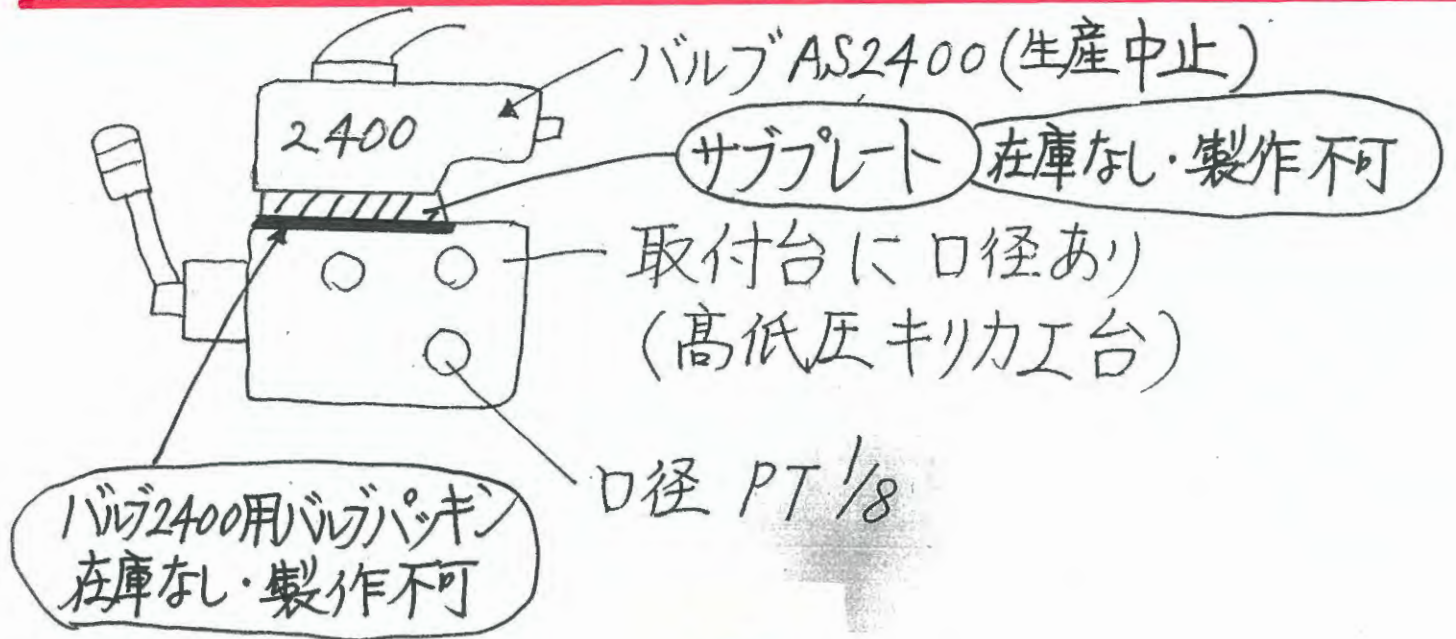 バルブ AS2400 (生産中止)
2400
サブプレート 在庫なし・製作不可
取付台に口径あり
(高低圧キリカエ台)
口径 PT 1/8
バルブ2400用バルブパッキン
在庫なし・製作不可